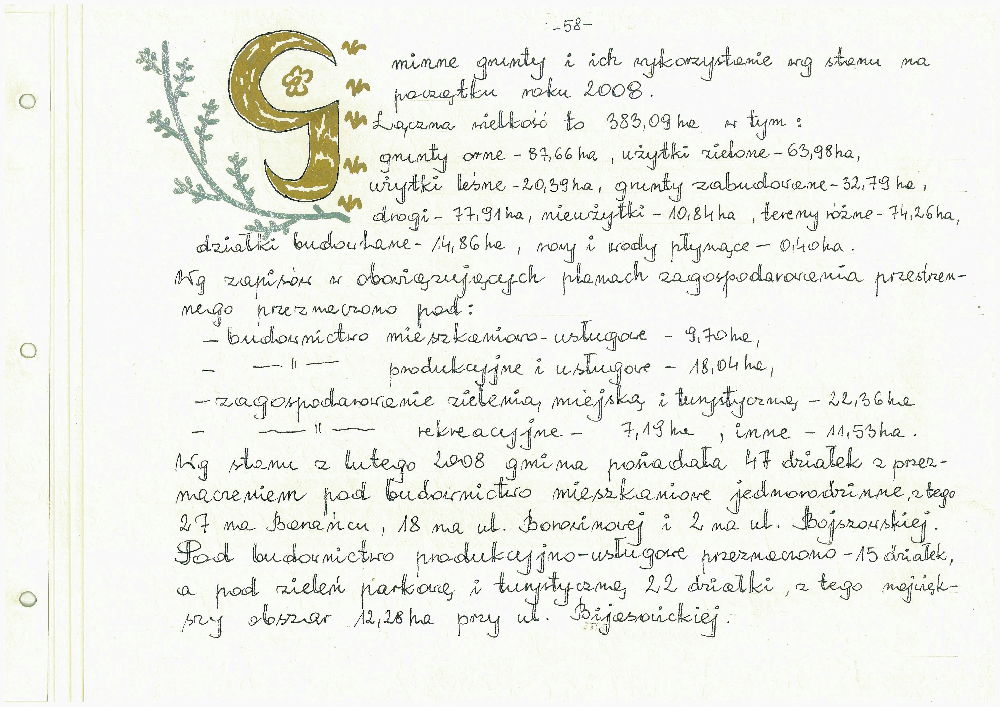 -58-
Gminne grunty i ich wykorzystanie wg stanu na
początku roku 2008.
Łączna wielkość to 383,09ha w tym:
grunty orne - 87,66ha, użytki zielone - 63,98ha,
użytki leśne - 20,39ha, grunty zabudowane - 32,79ha,
drogi - 77,91ha, nieużytki - 10,84ha, tereny różne - 74,26ha,
działki budowlane - 14,86ha, rowy i wody płynące - 0,40ha.
Wg zapisów w obowiązujących planach zagospodarowania przestrzen-
nego przeznaczono pod:
- budownictwo mieszkaniowo-usługowe - 9,70ha,
- —"— produkcyjne i usługowe - 18,04ha,
- zagospodarowanie zielenią miejską i turystyczną - 22,36ha
- —"— rekreacyjne - 7,19ha, inne - 11,53ha.
Wg stanu z lutego 2008 gmina posiadała 47 działek z przez-
naczeniem pod budownictwo mieszkaniowe jednorodzinne, z tego
27 na Banańcu, 18 na ul. Borowinowej i 2 na ul. Bojszowskiej.
Pod budownictwo produkcyjno-usługowe przeznaczono - 15 działek,
a pod zieleń parkową i turystyczną 22 działki, z tego najwięk-
szy obszar 12,28ha przy ul. Bijasowickiej.